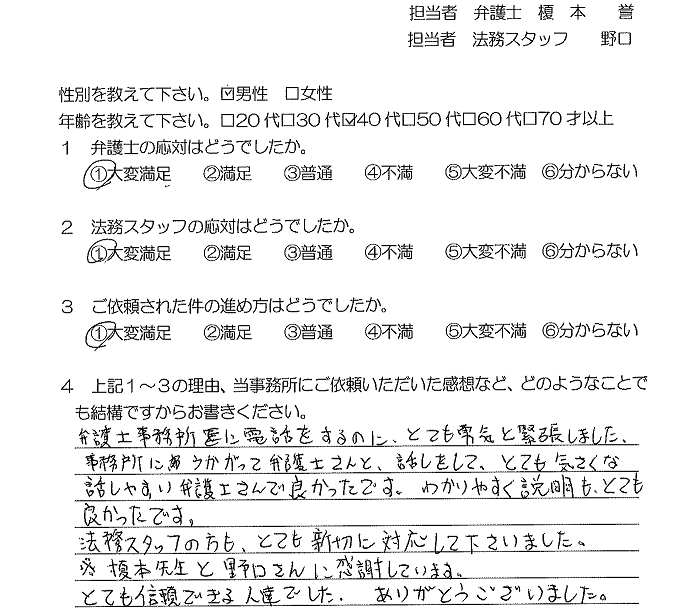 担当者 弁護士 榎 本 誉
担当者 法務スタッフ 野口
性別を教えて下さい。☑男性 □女性
年齢を教えて下さい。□20代□30代☑40代□50代□60代□70才以上
1 弁護士の応対はどうでしたか。
①大変満足 ②満足 ③普通 ④不満 ⑤大変不満 ⑥分からない
2 法務スタッフの応対はどうでしたか。
①大変満足 ②満足 ③普通 ④不満 ⑤大変不満 ⑥分からない
3 ご依頼された件の進め方はどうでしたか。
①大変満足 ②満足 ③普通 ④不満 ⑤大変不満 ⑥分からない
4 上記1~3の理由、当事務所にご依頼いただいた感想など、どのようなことで
も結構ですからお書きください。
弁護士事務所に電話をするのに、とても勇気と緊張しました、
事務所にうかがって弁護士さんと、話しをして、とても気さくな
話しやすい弁護士さんで良かったです。わかりやすく説明も、とても
良かったです。
法務スタッフの方も、とても新切に対応して下さいました。
※ 榎本先生と野口さんに感謝しています。
とても信頼できる人達でした. ありがとうございました。